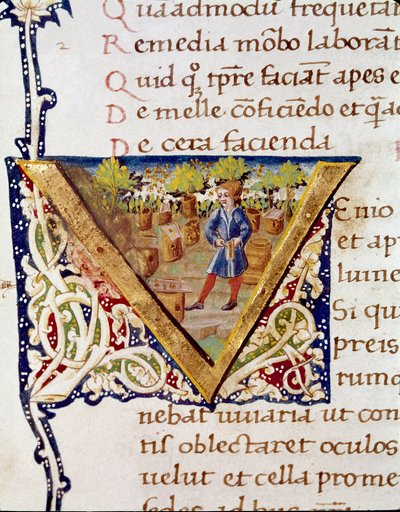 Quaadmodū frequetan
2
Remedia mōbo laborāt
Quid qꝫ tp̄re faciāt apes e
De melle cōficiēdo et q̄a
De cera facienda
VEnio
et ap
lume
Si qu
preis
rumq
nebat uiuaria ut con
tis oblectaret oculos
uelut et cella prome
sedes ad huc